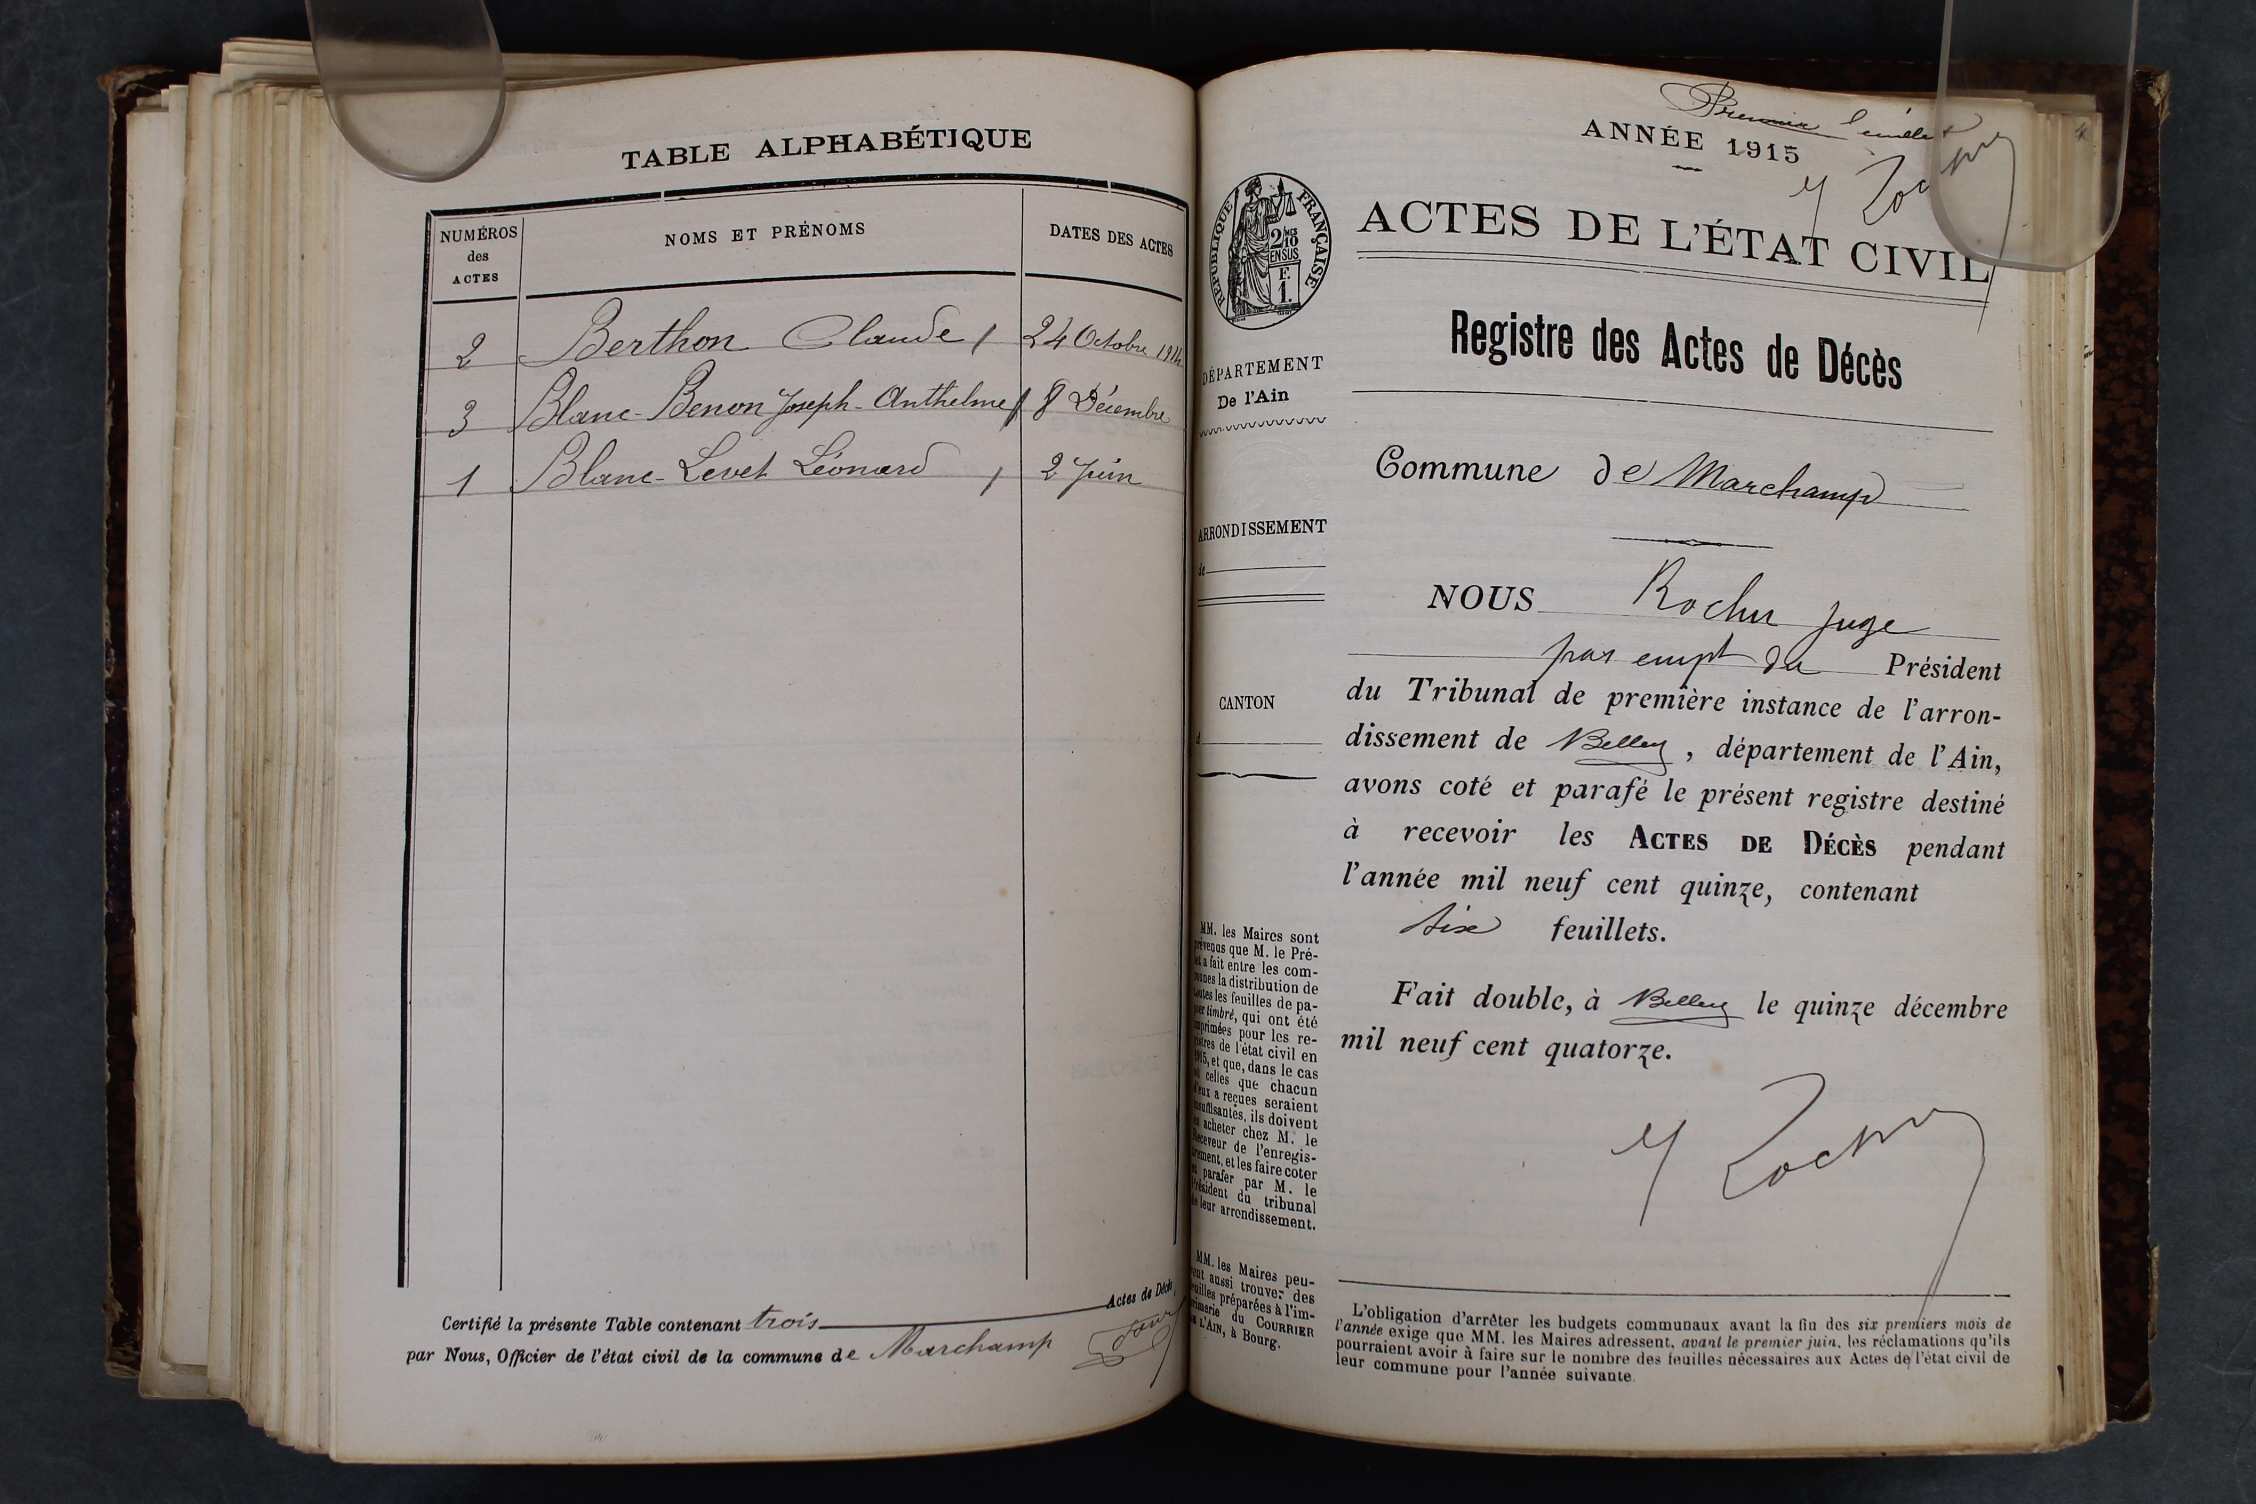 TABLE ALPHABÉTIQUE
NUMÉROS des ACTES
NOMS ET PRÉNOMS
DATES DES ACTES
2 Berthon Claude 24 Octobre 1914
3 Blanc-Benon Joseph-Anthelme 8 Décembre
1 Blanc-Levet Léonard 2 Juin
Certifié la présente Table contenant trois Actes de Décès
par Nous, Officier de l'état civil de la commune de Marchamp
Premier feuillet
ANNÉE 1915
ACTES DE L'ÉTAT CIVIL
RÉPUBLIQUE FRANÇAISE
2/10
EN SUS
F.
1.
Registre des Actes de Décès
DÉPARTEMENT
De l'Ain
Commune de Marchamp
ARRONDISSEMENT
de
NOUS Rocher Juge
par empt du Président
CANTON
du Tribunal de première instance de l'arron-
dissement de Belley, département de l'Ain,
avons coté et parafé le présent registre destiné
à recevoir les ACTES DE DÉCÈS pendant
l'année mil neuf cent quinze, contenant
six feuillets.
Fait double, à Belley le quinze décembre
mil neuf cent quatorze.
MM. les Maires sont
prévenus que M. le Pré-
fet a fait entre les com-
munes la distribution de
toutes les feuilles de pa-
pier timbré, qui ont été
imprimées pour les re-
gistres de l'état civil en
1915, et que, dans le cas
où celles que chacun
d'eux a reçues seraient
insuffisantes, ils doivent
en acheter chez M. le
Receveur de l'enregis-
trement, et les faire coter
et parafer par M. le
Président du tribunal
de leur arrondissement.
MM. les Maires peu-
vent aussi trouver des
feuilles préparées à l'im-
primerie du COURRIER
DE L'AIN, à Bourg.
L'obligation d'arrêter les budgets communaux avant la fin des six premiers mois de
l'année exige que MM. les Maires adressent, avant le premier juin, les réclamations qu'ils
pourraient avoir à faire sur le nombre des feuilles nécessaires aux Actes de l'état civil de
leur commune pour l'année suivante.